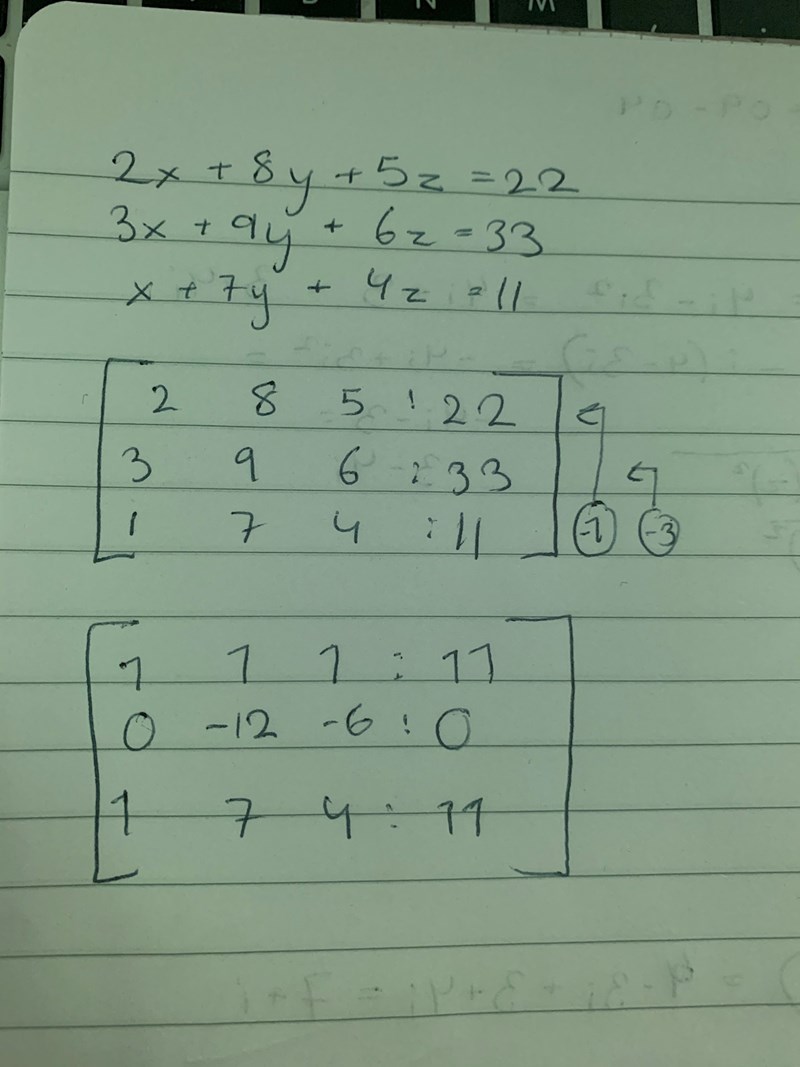 2x + 8y + 5z = 22
3x + 9y + 6z = 33
x + 7y + 4z = 11
2 8 5 : 22
3 9 6 : 33
1 7 4 : 11 -1 -3
1 1 1 : 11
0 -12 -6 : 0
1 7 4 : 11